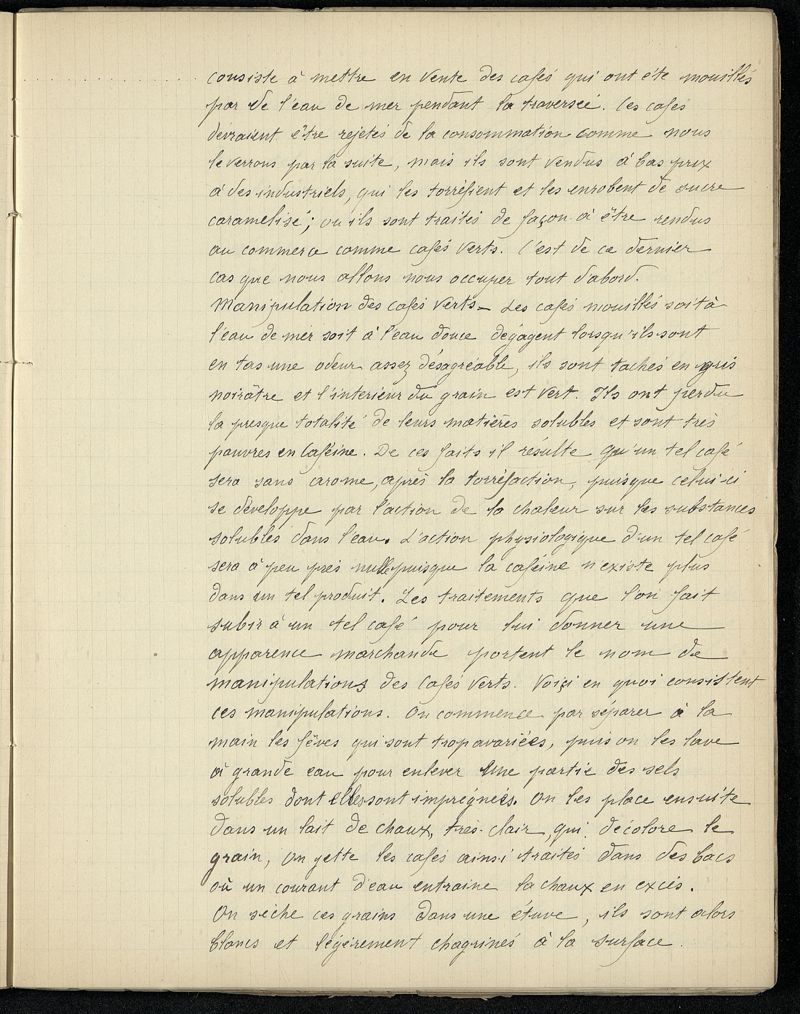 consiste à mettre en vente des cafés qui ont été mouillés
par de l'eau de mer pendant la traversée. Ces cafés
devraient être rejetés de la consommation comme nous
le verrons par la suite, mais ils sont vendus à bas prix
à des industriels, qui les torréfient et les enrobent de sucre
caramélisé; ou ils sont traités de façon à être rendus
au commerce comme cafés verts. C'est de ce dernier
cas que nous allons nous occuper tout d'abord.
Manipulation des cafés verts_ Les cafés mouillés soit à
l'eau de mer soit à l'eau douce dégagent lorsqu'ils sont
en tas une odeur assez désagréable, ils sont tachés en gris
noirâtre et l'intérieur du grain est vert. Ils ont perdu
la presque totalité de leurs matières solubles et sont très
pauvres en Caféine. De ces faits il résulte qu'un tel café
sera sans arome, après la torréfaction, puisque celui-ci
se développe par l'action de la chaleur sur les substances
solubles dans l'eau. L'action physiologique d'un tel café
sera à peu près nulle puisque la caféine n'existe plus
dans un tel produit. Les traitements que l'on fait
subir à un tel café pour lui donner une
apparence marchande portent le nom de
manipulations des Cafés verts. Voici en quoi consistent
ces manipulations. On commence par séparer à la
main les fèves qui sont trop avariées, puis on les lave
à grande eau pour enlever une partie des sels
solubles dont elles sont imprégnées. On les place ensuite
dans un lait de chaux, très-clair, qui décolore le
grain, on jette les cafés ainsi traités dans des bacs
où un courant d'eau entraine la chaux en excès.
On sèche ces grains dans une étuve, ils sont alors
blancs et légèrement chagrinés à la surface.